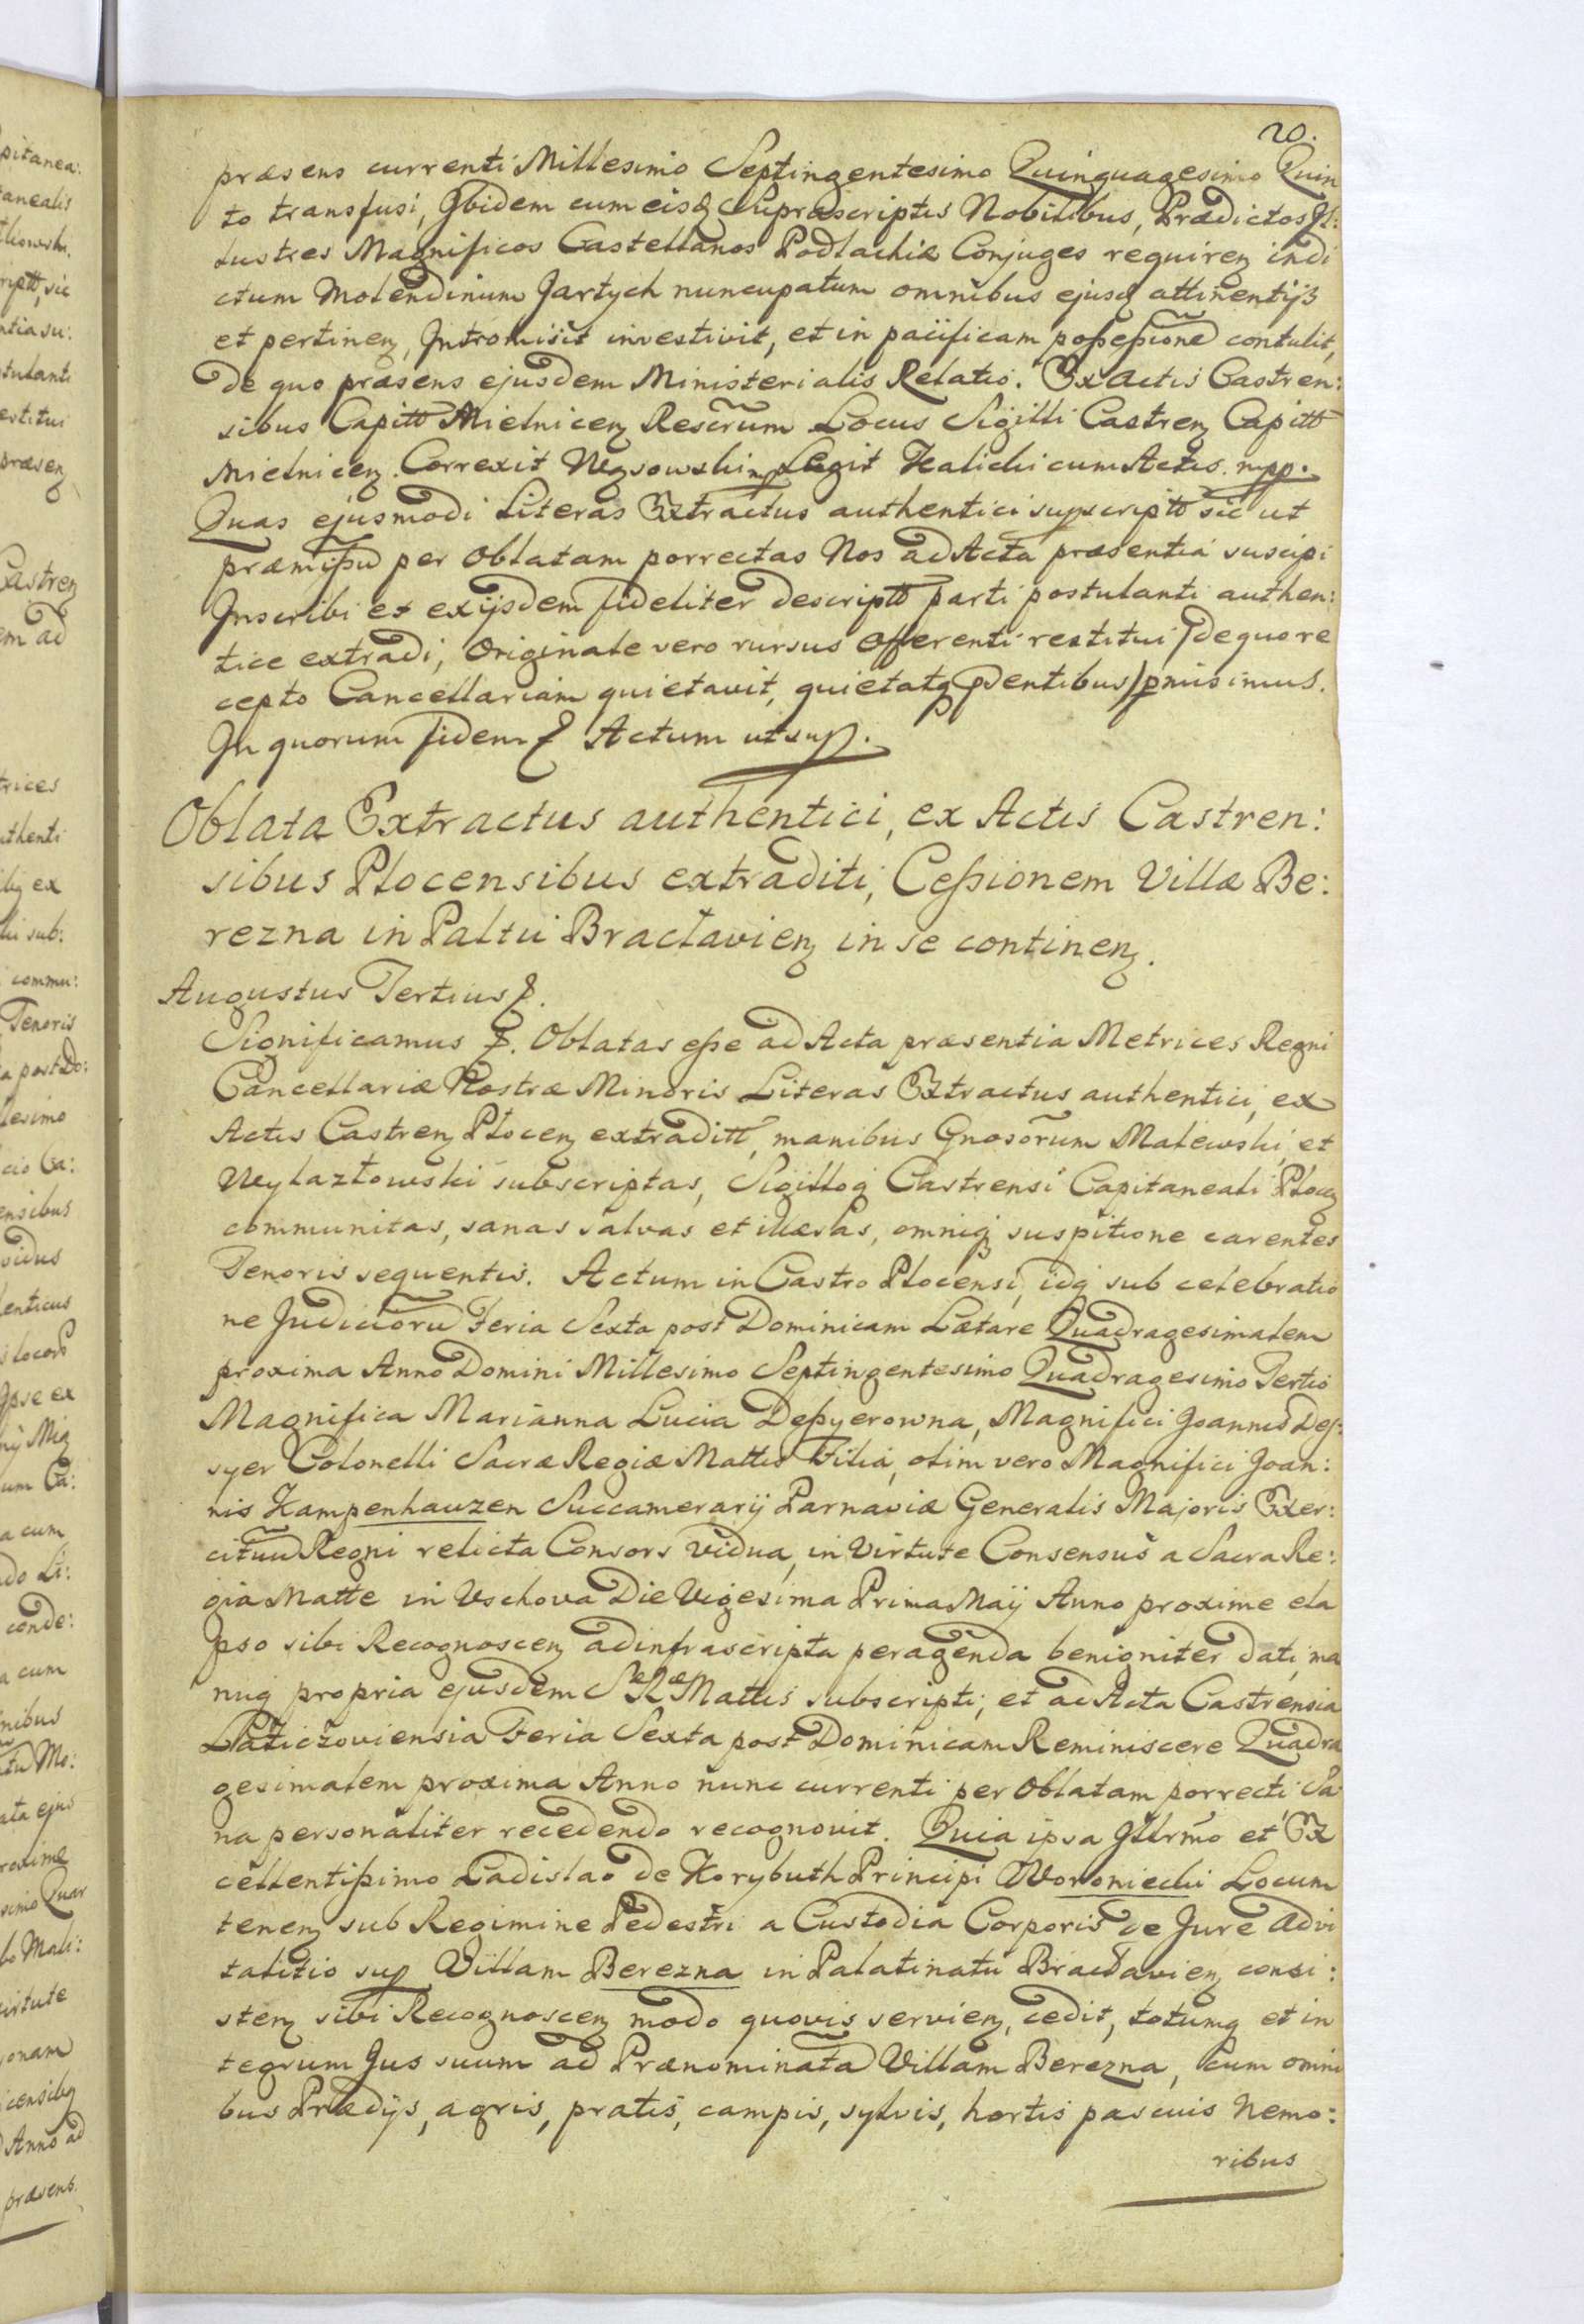 20.
præsens currenti Millesimo Septingentesimo Quinquagesimo Quin
to transfusi, Ibidem cum eisq Supræscriptis Nobilibus, Prædictos Il:
lustres Magnificos Castellanos Podlachiæ Conjuges requireñ indi
ctum Molendinum Jartych nuncupatum omnibus ejusq attinentijs
et pertineñ, Intromisit investivit, et in pacificam possessione contulit,
De quo præsens ejusdem Ministerialis Relatio. Ex Actis Castren:
sibus Capitt Mielniceñ Rescrum Locus Sigilli Castreñ Capitt
Mielniceñ. Correxit Węsowski mp Legit Halicki cum Actis. mpp.
Quas ejusmodi Literas Extractus authentici supscriptt sic ut
præmissu per Oblatam porrectas Nos ad Acta præsentia suscipi
Inscribi et exijsdem fideliter descriptt parti postulanti authen:
tice extradi, Originale vero rursus Offerenti restitui /de quo re
cepto Cancellariam quietavit, quietatq pdentibus/ pmisimus.
In quorum fidem & Actum ut sup.
Oblata Extractus authentici, ex Actis Castren:
sibus Plocensibus extraditi, Cessionem Villæ Be:
rezna in Paltu Bracłavieñ in se contineñ.
Augustus Tertius &.
Significamus &. Oblatas esse ad Acta præsentia Metrices Regni
Cancellariæ Nostræ Minoris Literas Extractus authentici, ex
Actis Castreñ Ploceñ extraditt, manibus Gnosorum Malewski, et
Wylazłowski subscriptas, Sigilloq Castrensi Capitaneali Ploceñ
communitas, sanas salvas et illæsas, omniq suspitione carentes
Tenoris sequentis. Actum in Castro Plocensi, idq sub celebratio
ne Judiciorũ Feria Sexta post Dominicam Lætare Quadragesimalem
proxima Anno Domini Millesimo Septingentesimo Quadragesimo Tertio
Magnifica Marianna Lucia Dessyerowna, Magnifici Joannis Des:
syer Colonelli Sacræ Regiæ Mattis Filia, olim vero Magnifici Joan:
nis Kampenhauzen Succamerarij Parnaviæ Generalis Majoris Exer:
cituũ Regni relicta Consors vidua, in Virtute Consensus a Sacra Re:
gia Matte in Vschova Die Vigesima Prima Maij Anno proxime ela
pso sibi Recognosceñ ad infrascripta peragenda benigniter dati, ma
nuq propria ejusdem Sæ Ræ Mattis subscripti, et ad Acta Castrensia
Łaticzoviensia Feria Sexta post Dominicam Reminiscere Quadra
gesimalem proxima Anno nunc currenti per Oblatam porrecti Sa
na personaliter recedendo recognovit. Quia ipsa Illrmo et Ex
cellentissimo Ladislao de Korybuth Principi Woroniecki Locum
teneñ sub Regimine Pedestri a Custodia Corporis de Jure Advi
talitio sup Villam Berezna in Palatinatu Bracłavieñ consi:
steñ sibi Recognosceñ modo quovis servieñ, cedit, totumq et in
tegrum Jus suum ad Prænominata Villam Berezna, cum omni
bus Prædijs, agris, pratis, campis, sylvis, hortis pascuis Nemo:
ribus